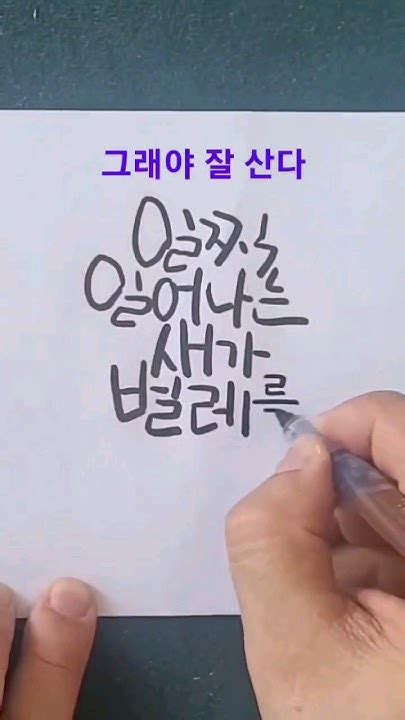 그래야 잘 산다
일찍
일어나는
새가
벌레르